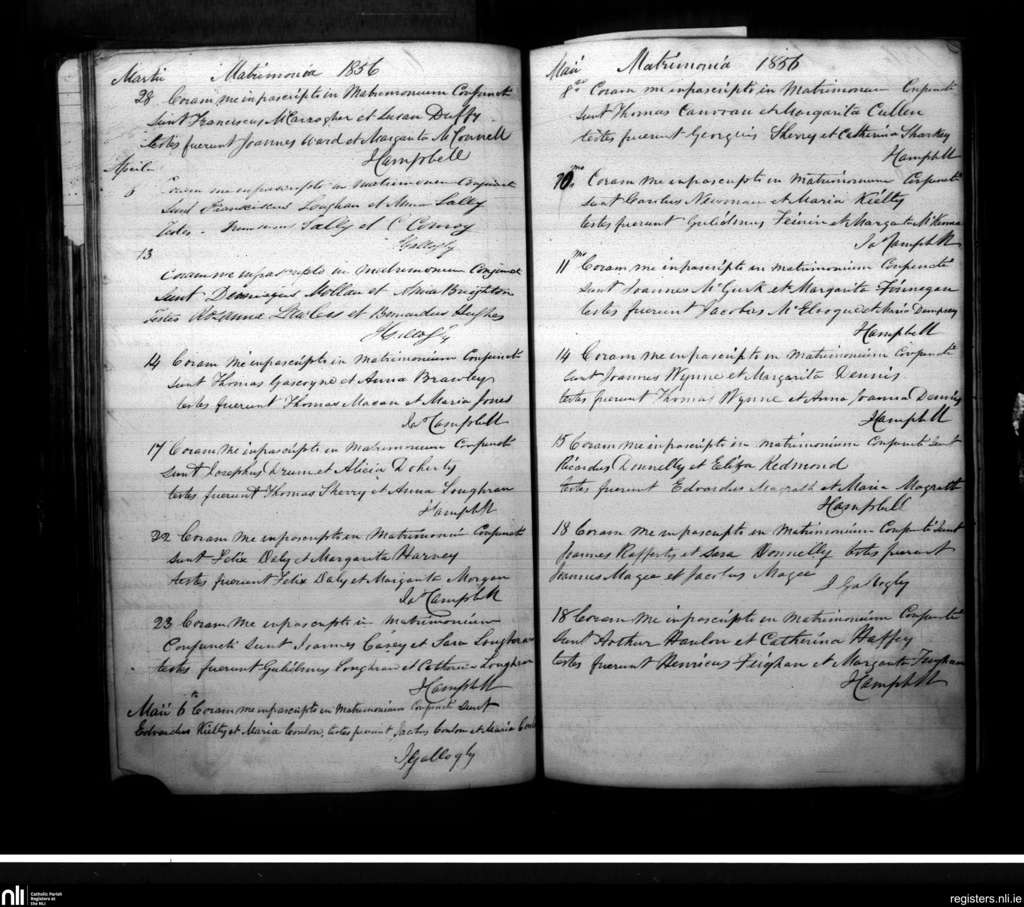 Martii Matrimonia 1856
28 Coram me infrascripto in Matrimonium Conjuncti
sunt Franciscus McCarragher et Susan Duffy
testes fuerunt Joannes Ward et Margarita McConnell
JCampbell
Aprilis
5 Coram me infrascripto in matrimonium Conjuncti
sunt Franciscus Loughan et Anna Lally
Testes Tally et C Conroy
Gallogly
13
Coram me infrascripto in matrimonium Conjuncti
Sunt Dionisius Mollan et Anna Breighton
Testes Rosanna Lawless et Bernardus Hughes
14 Coram me infrascripto in matrimonium Conjuncti
sunt Thomas Gascoyne et Anna Brawley
testes fuerunt Thomas Macan et Maria Jones
Jas Campbell
17 Coram me infrascripto in Matrimonium Conjuncti
sunt Josephus Drum et Alicia Doherty
testes fuerunt Thomas Sherry et Anna Loughran
JCampbell
22 Coram me infrascripto in Matrimonium Conjuncti
sunt Felix Daly et Margarita Harvey
testes fuerunt Felix Daly et Margarita Morgan
Jas Campbell
23 Coram me infrascripto in matrimonium
Conjuncti sunt Joannes Casey et Sara Loughran
testes fuerunt Gulielmus Loughran et Catherina Loughran
JCampbell
Maii 6th Coram me infrascripto in Matrimonium Conjuncti sunt
Edvardus Kielty et Maria Conlon, testes fuerunt Jacobus Conlon et Maria
JGallogly
Maii Matrimonia 1856
8vo Coram me infrascripto in Matrimonium Conjuncti
sunt Thomas Canavan et Margarita Cullen
testes fuerunt Georgius Sherry et Catherina Sharkey
JCampbell
10mo Coram me infrascripto in Matrimonium Conjuncti
sunt Carolus Newman et Maria Kielty
testes fuerunt Gulielmus Feinin et Margarita McKenna
Jas Campbell
11mo Coram me infrascripto in matrimonium Conjuncti
sunt Joannes McGurk et Margarita Finnegan
testes fuerunt Jacobus McElroque et Maria Dempsey
JCampbell
14 Coram me infrascripto in matrimonium Conjuncti
sunt Joannes Wynne et Margarita Dennis
testes fuerunt Thomas Wynne et Anna Joanna Dennis
JCampbell
15 Coram me infrascripto in matrimonium Conjuncti sunt
Ricardus Donnelly et Eliza Redmond
testes fuerunt Edvardus Magrath et Maria Magrath
JCampbell
18 Coram me infrascripto in Matrimonium Conjuncti sunt
Joannes Rafferty et Sara Donnelly testes fuerunt
Joannes Magee et Jacobus Magee
J Gallogly
18 Coram me infrascripto in Matrimonium Conjuncti
sunt Arthur Hanlon et Catherina Haffey
testes fuerunt Henricus Feighan et Margarita Feighan
JCampbell
nli Catholic Parish
Registers at
the NLI
registers.nli.ie